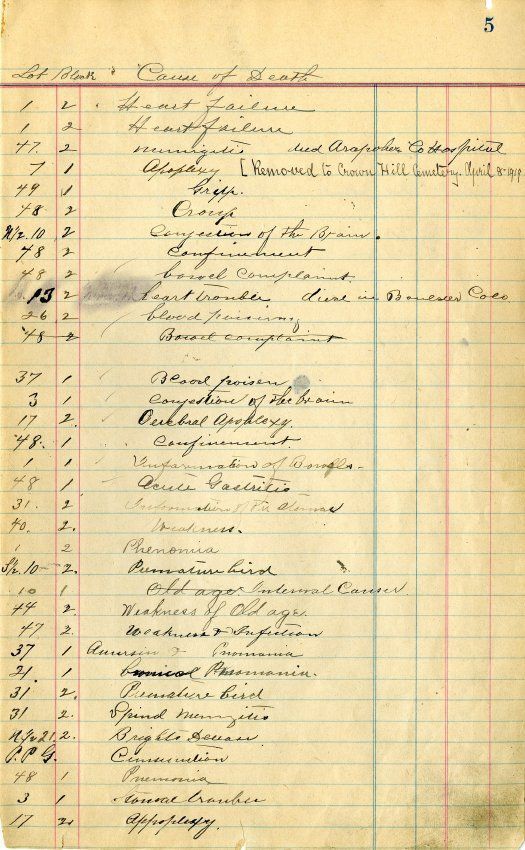 5
Lot Block Cause of Death
1 2 Heart failure
1 2 Heart failure
47. 2 mennigitis died Arapahoe Co Hospital
7 1 Apoplexy [Removed to Crown Hill Cemetery. April 8-1919
49 1 Gripp.
48 2 Croup
N/2.10 2 Congestion of the Brain.
48 2 Confinement
48 2 bowel complaint.
13 2 heart trouble died in Boulder Colo
26 2 blood poisining
48 2 Bowel complaint
37 1 Blood poisen
3 1 Congestion of the brain
17 2. Cerebral Apoplexy.
48. 1 Confinement
1 1 Imflamation of Bowells.
48 1 Acute Gastritis
31. 2
40. 2. Weakness.
1 2 Phenomia
S/2.10 2. Premature bird
10 1 Old age Internal Causes
44 2. Weakness of Old age.
47 2. Weakness & Infection
37 1 & Pnomania
21. 1 Pnomania.
31 2. Premature bird
31 2. Spind Mennigitis
N/2 21. 2. Brights Desease
P.P.G. Cunsumtion
48 1 Pnemonia
3 1 trouble
17 2. Appoplexy.